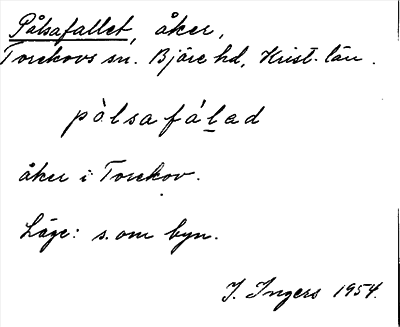 Pålsafallet, åker,
Torekovs sn. Bjäre hd, Krist. län.
pålsafálad
åker i Torekov.
Läge: s. om byn.
J. Ingers 1954.